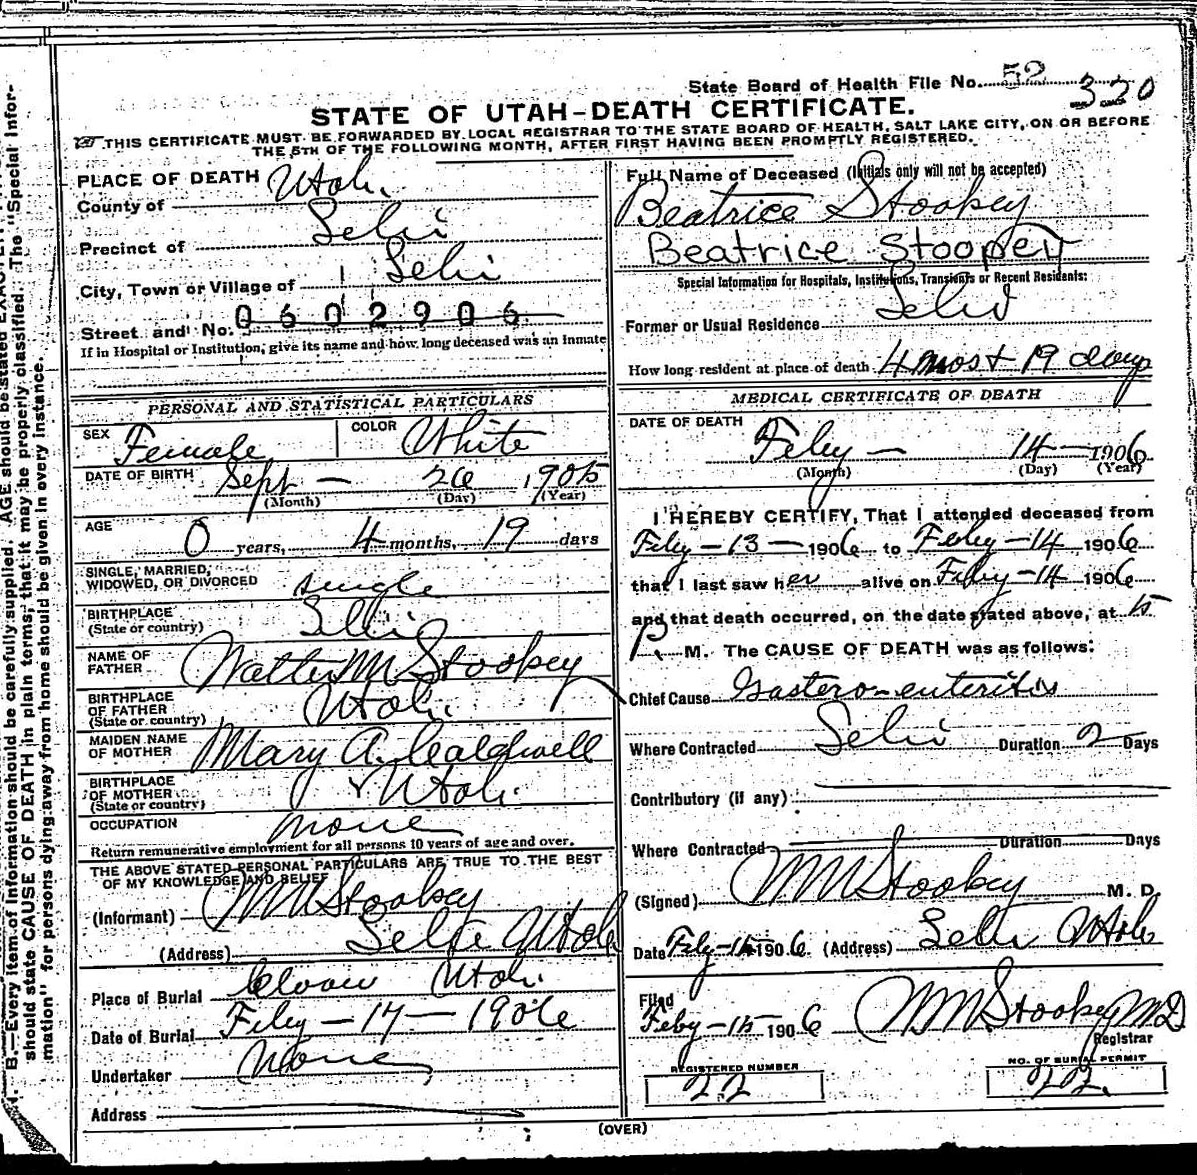 State Board of Health File No. 52
320
STATE OF UTAH-DEATH CERTIFICATE.
THIS CERTIFICATE MUST BE FORWARDED BY LOCAL REGISTRAR TO THE STATE BOARD OF HEALTH, SALT LAKE CITY, ON OR BEFORE
THE 5TH OF THE FOLLOWING MONTH, AFTER FIRST HAVING BEEN PROMPTLY REGISTERED.
PLACE OF DEATH
County of Utah
Precinct of Lehi
City, Town or Village of Lehi
Street and No. 0602906
If in Hospital or Institution, give its name and how long deceased was an Inmate
PERSONAL AND STATISTICAL PARTICULARS
SEX Female COLOR White
DATE OF BIRTH Sept - 26 1905
(Month) (Day) (Year)
AGE 0 years, 4 months, 19 days
SINGLE, MARRIED,
WIDOWED, OR DIVORCED single
BIRTHPLACE
(State or country) Lehi
NAME OF
FATHER Walter M Stookey
BIRTHPLACE
OF FATHER
(State or country) Utah.
MAIDEN NAME
OF MOTHER Mary A. Caldwell
BIRTHPLACE
OF MOTHER
(State or country) Utah.
OCCUPATION none
Return remunerative employment for all persons 10 years of age and over.
THE ABOVE STATED PERSONAL PARTICULARS ARE TRUE TO THE BEST
OF MY KNOWLEDGE AND BELIEF
(Informant) WM Stookey
(Address) Lehi Utah
Place of Burial Clover Utah.
Date of Burial Feby - 17 - 1906
Undertaker None
Address
Full Name of Deceased (Initials only will not be accepted)
Beatrice Stookey
Beatrice Stoopey
Special Information for Hospitals, Institutions, Transients or Recent Residents:
Former or Usual Residence Lehi
How long resident at place of death 4 mos + 19 days
MEDICAL CERTIFICATE OF DEATH
DATE OF DEATH
Feby - 14 - 1906
(Month) (Day) (Year)
I HEREBY CERTIFY, That I attended deceased from
Feby - 13 - 1906 to Feby - 14, 1906
that I last saw her alive on Feby - 14 1906
and that death occurred, on the date stated above, at 15
P. M. The CAUSE OF DEATH was as follows:
Chief Cause Gastero-enteritis
Where Contracted Lehi Duration 2 Days
Contributory (if any)
Where Contracted Duration Days
(Signed) WM Stookey M. D.
Date Feby - 14 1906 (Address) Lehi Utah
Filed
Feby - 15 - 1906 WM Stookey MD
Registrar
REGISTERED NUMBER
22
NO. OF BURIAL PERMIT
22.
(OVER)
B.—Every item of Information should be carefully supplied. AGE should be stated
should state CAUSE OF DEATH in plain terms, that it may be properly classified. The "Special Infor-
mation" for persons dying away from home should be given in every instance.